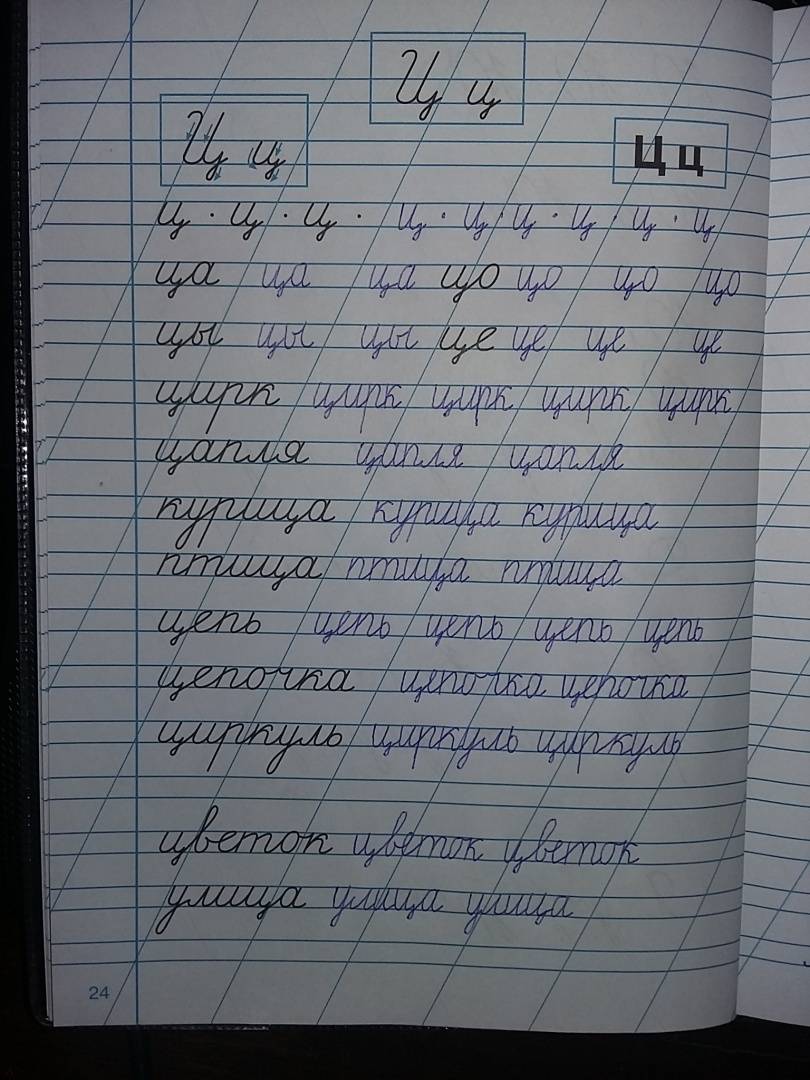 Ц ц
Ц ц
Ц ц
ц · ц · ц · ц · ц · ц · ц · ц · ц
ца ца ца цо цо цо цо
цы цы цы це це це це
цирк цирк цирк цирк цирк
цапля цапля цапля
курица курица курица
птица птица птица
цепь цепь цепь цепь цепь
цепочка цепочка цепочка
циркуль циркуль циркуль
цветок цветок цветок
улица улица улица
24